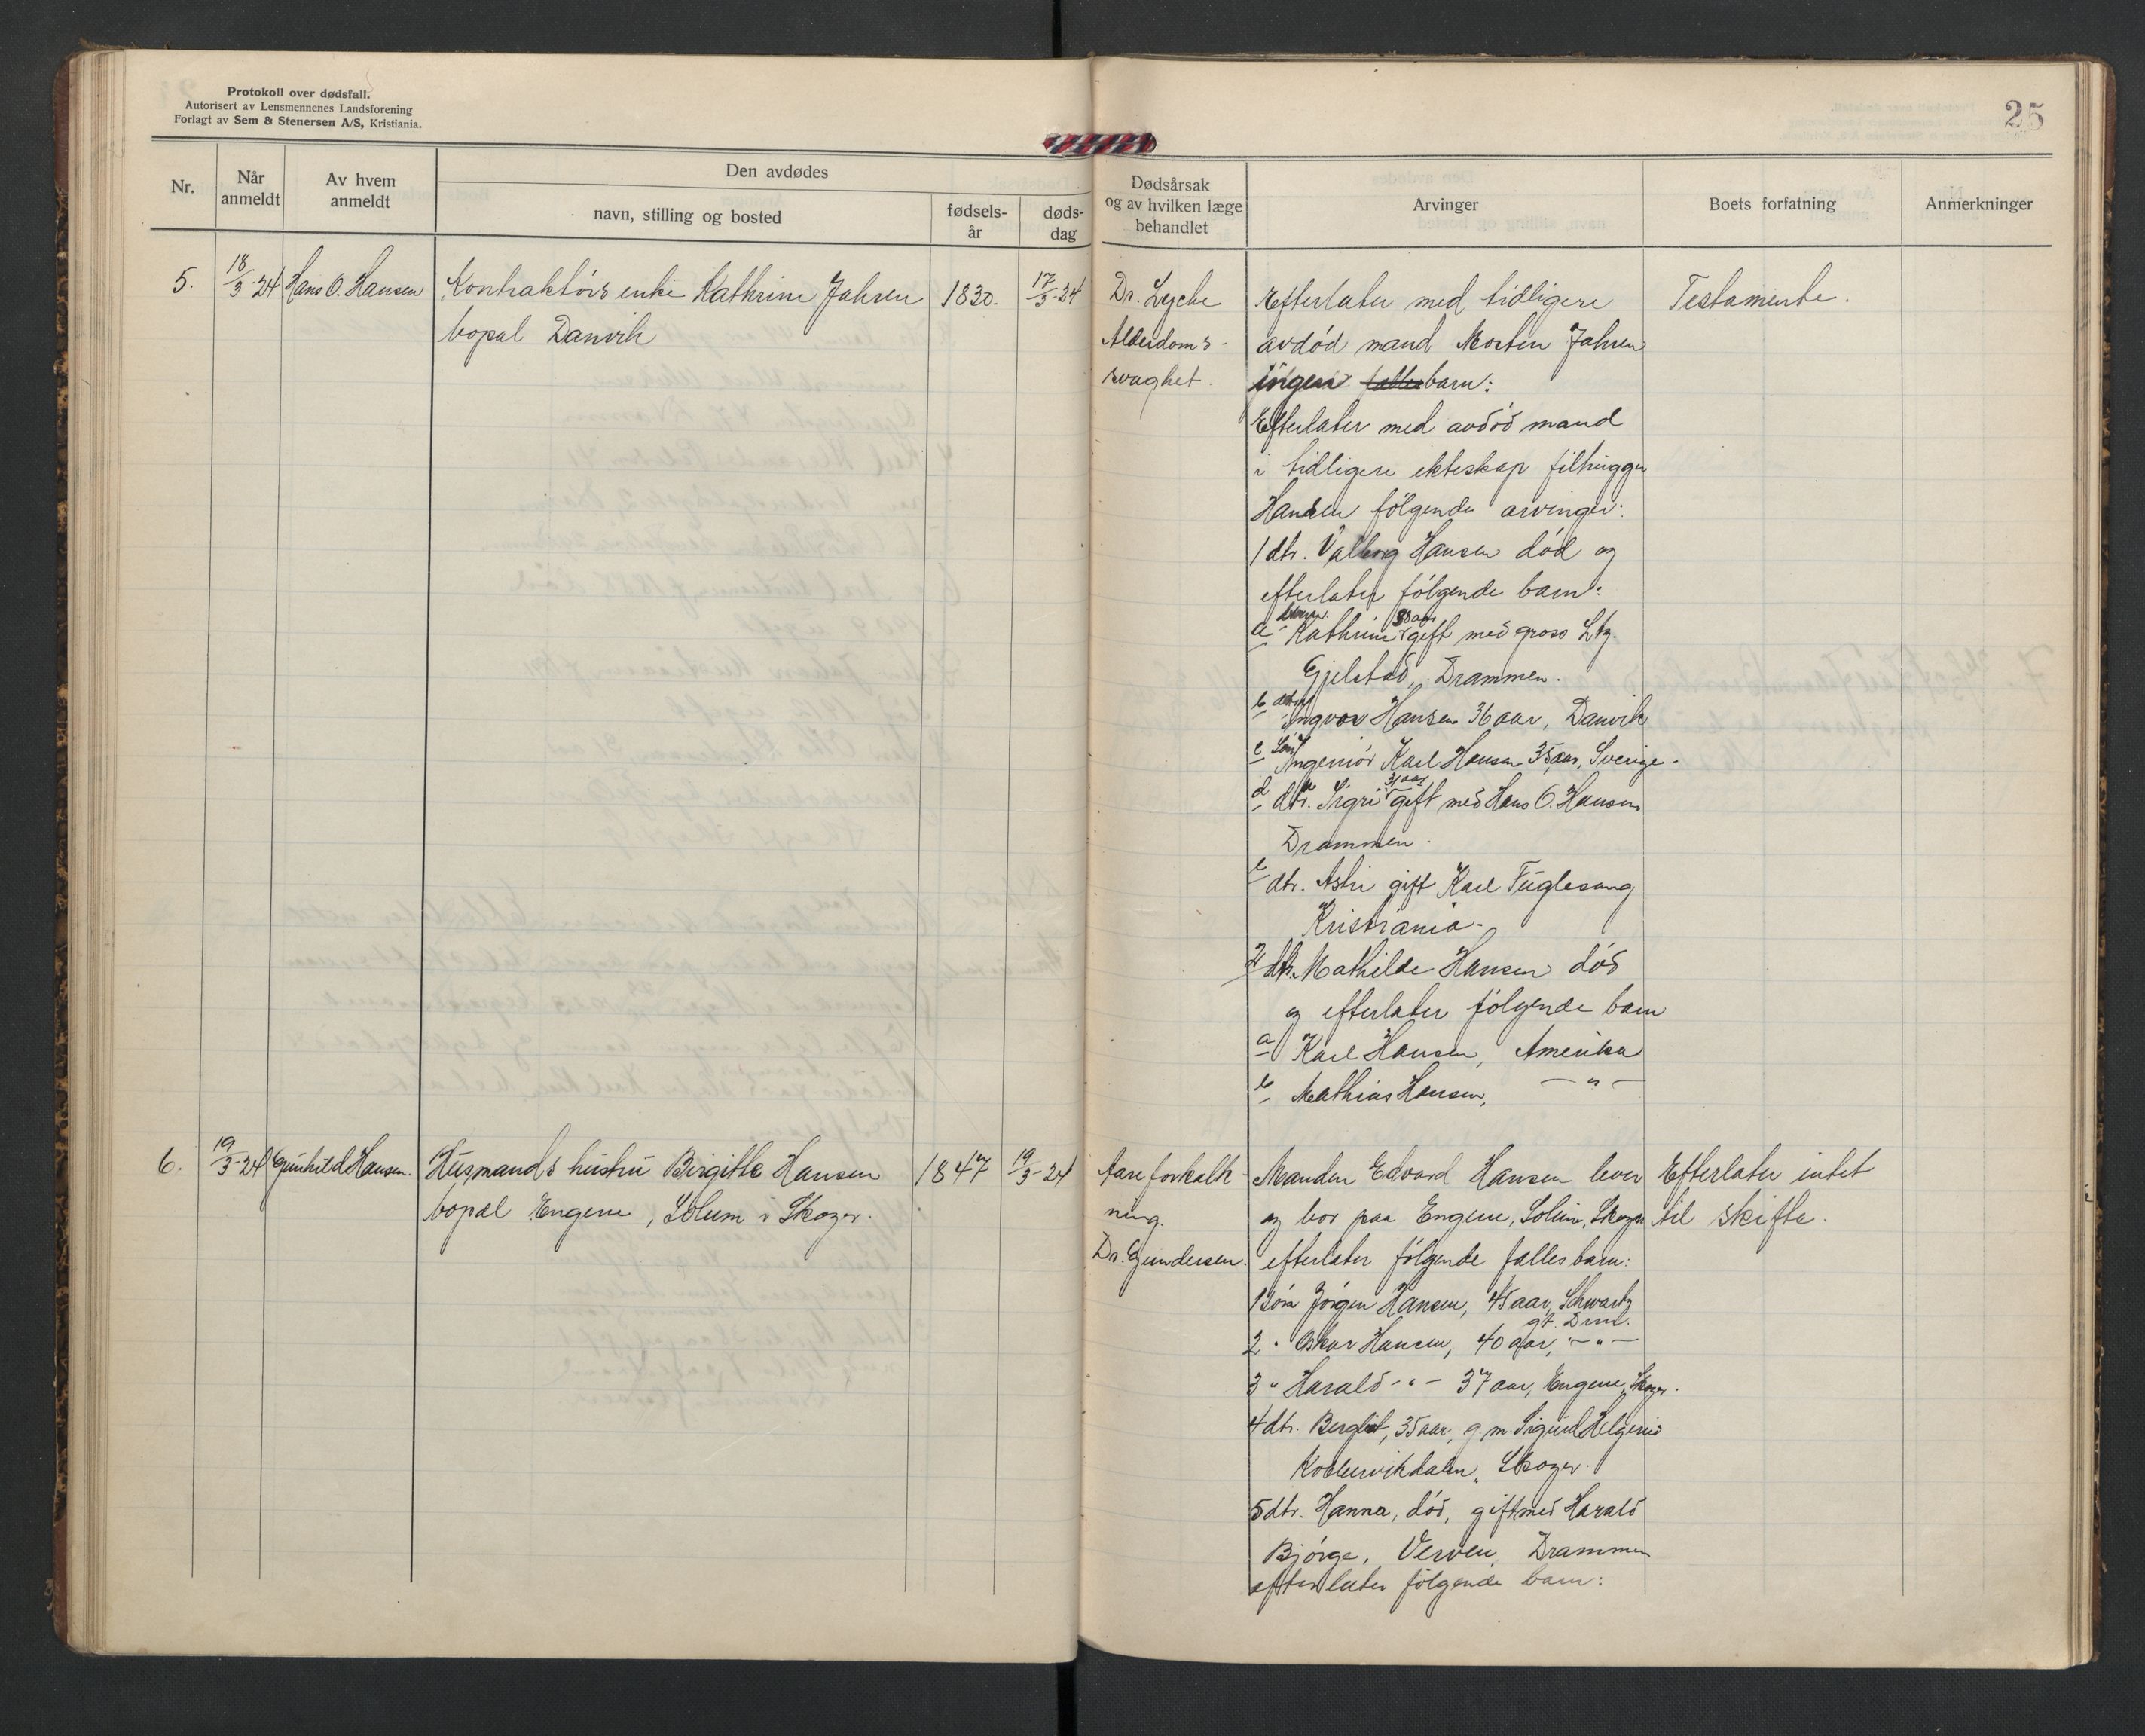 Protokoll over dødsfall.
Autorisert av Lensmennenes Landsforening
Forlagt av Sem & Stenersen A/S, Kristiania.
25
Nr.
Når anmeldt
Av hvem anmeldt
Den avdødes
navn, stilling og bosted
fødsels-
år
døds-
dag
Dødsårsak
og av hvilken læge
behandlet
Arvinger
Boets forfatning
Anmerkninger
5.
18/3-24
Hans O. Hansen
Kontraktørs enke Kathrine Jahren
bopæl Danvik
1830.
17/3-24
Dr. Lyche
Alderdoms-
svaghet.
Efterlater med tidligere
avdød mand Morten Jahren
ingen fælles barn:
Efterlater med avdød mand
i tidligere ekteskap filhugger
Hansen følgende arvinger:
1 dtr. Valborg Hansen død og
efterlater følgende barn:
a Kathrine gift med gross L
Gjelstad, Drammen.
b Ingvar Hansen 36 aar, Danvik
c Søn Ingeniør Karl Hansen 35 aar, Sverige.
31 aar
d dtr. Sigri gift med Hans O. Hansen
Drammen.
e dtr. Astri gift Karl Fuglesang
Kristiania.
2 dtr. Mathilde Hansen død
og efterlater følgende barn
a Karl Hansen, Amerika
b Mathias Hansen, — " —
Testamente.
6.
19/3-24
Gunhild Hansen.
Husmands hustru Birgitte Hansen
bopæl Engene, Solum i Skoger.
1847
19/3-24
Aareforkalk-
ning.
Dr. Gundersen.
Manden Edvard Hansen lever
og bor paa Engene, Solum, Skoger
efterlater følgende fælles barn:
1 Søn Jørgen Hansen, 45 aar, Schwartz
gt. Drm.
2 " Oskar Hansen, 40 aar, — " —
3 " Harald - " - 37 aar, Engene, Skoger.
4 dtr. Bergliot, 35 aar, g. m. Sigurd Helgerud
Kobbervikdalen, Skoger.
5 dtr. Hanna, død, gift med Harald
Bjørge, Verven, Drammen
efterlater følgende barn:
Efterlater intet
til skifte.